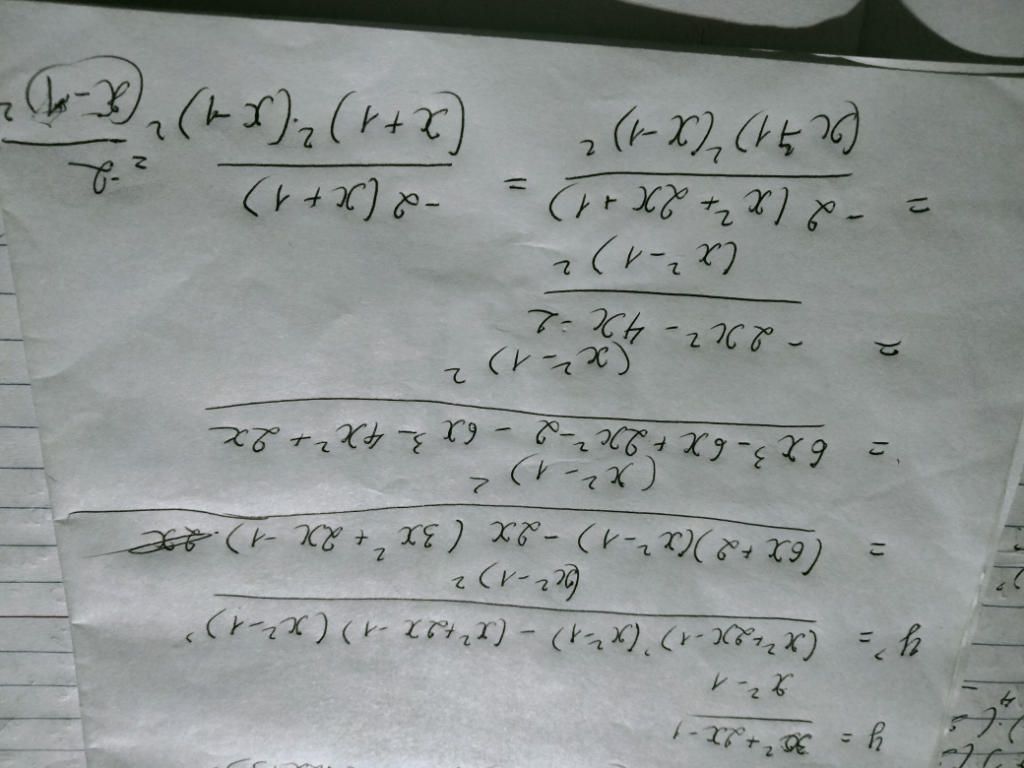 y = (3x² + 2x - 1) / (x² - 1)
y' = ((x² + 2x - 1)' (x² - 1) - (x² + 2x - 1) (x² - 1)') / (x² - 1)²
= ((6x + 2)(x² - 1) - 2x (3x² + 2x - 1)) / (x² - 1)²
= (6x³ - 6x + 2x² - 2 - 6x³ - 4x² + 2x) / (x² - 1)²
= (-2x² - 4x - 2) / (x² - 1)²
= (-2 (x² + 2x + 1)) / ((x + 1)² (x - 1)²) = (-2 (x + 1)) / ((x + 1)² · (x - 1)²) = (-2) / ((x - 1)²)